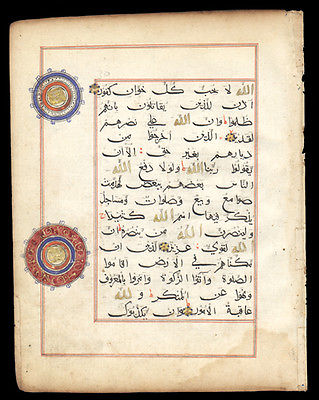 الله لا يحب كل خوان كفور
أذن للذين يقاتلون بأنهم
ظلموا وإن الله على نصرهم
لقدير الذين أخرجوا من
ديارهم بغير حق إلا أن
يقولوا ربنا الله ولولا دفع الله
الناس بعضهم ببعض لهدمت
صوامع وبيع وصلوات ومساجد
يذكر فيها اسم الله كثيرا
ولينصرن الله من ينصره إن
الله لقوي عزيز الذين إن
مكناهم في الأرض أقاموا
الصلوة وآتوا الزكوة وأمروا بالمعروف
ونهوا عن المنكر ولله
عاقبة الأمور وإن يكذبوك